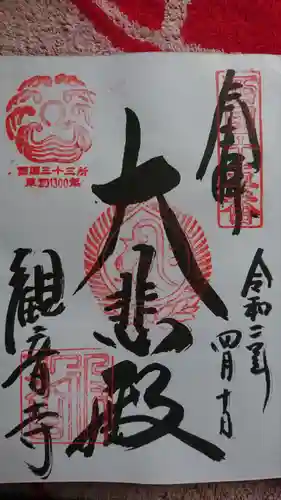 奉拝
令和二年
四月十日
大悲殿
観音寺
西国三十三所
草創1300年